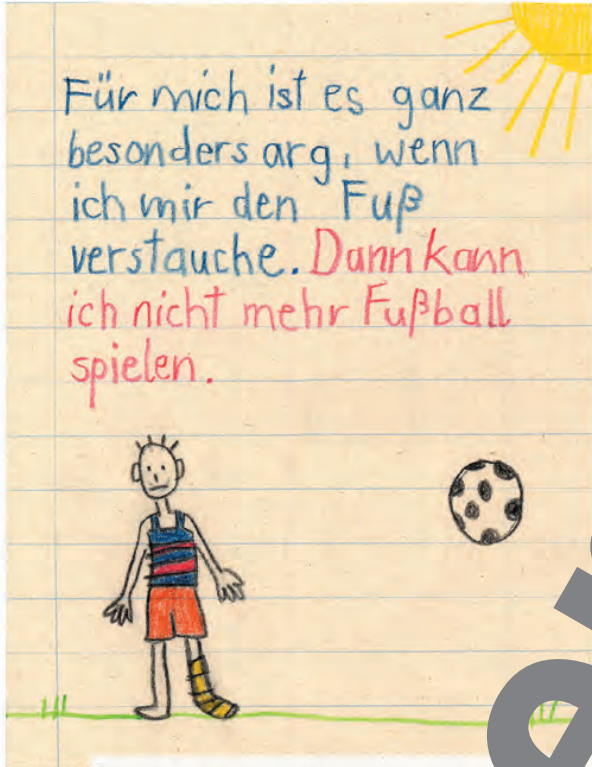 Für mich ist es ganz
besonders arg, wenn
ich mir den Fuß
verstauche. Dann kann
ich nicht mehr Fußball
spielen.